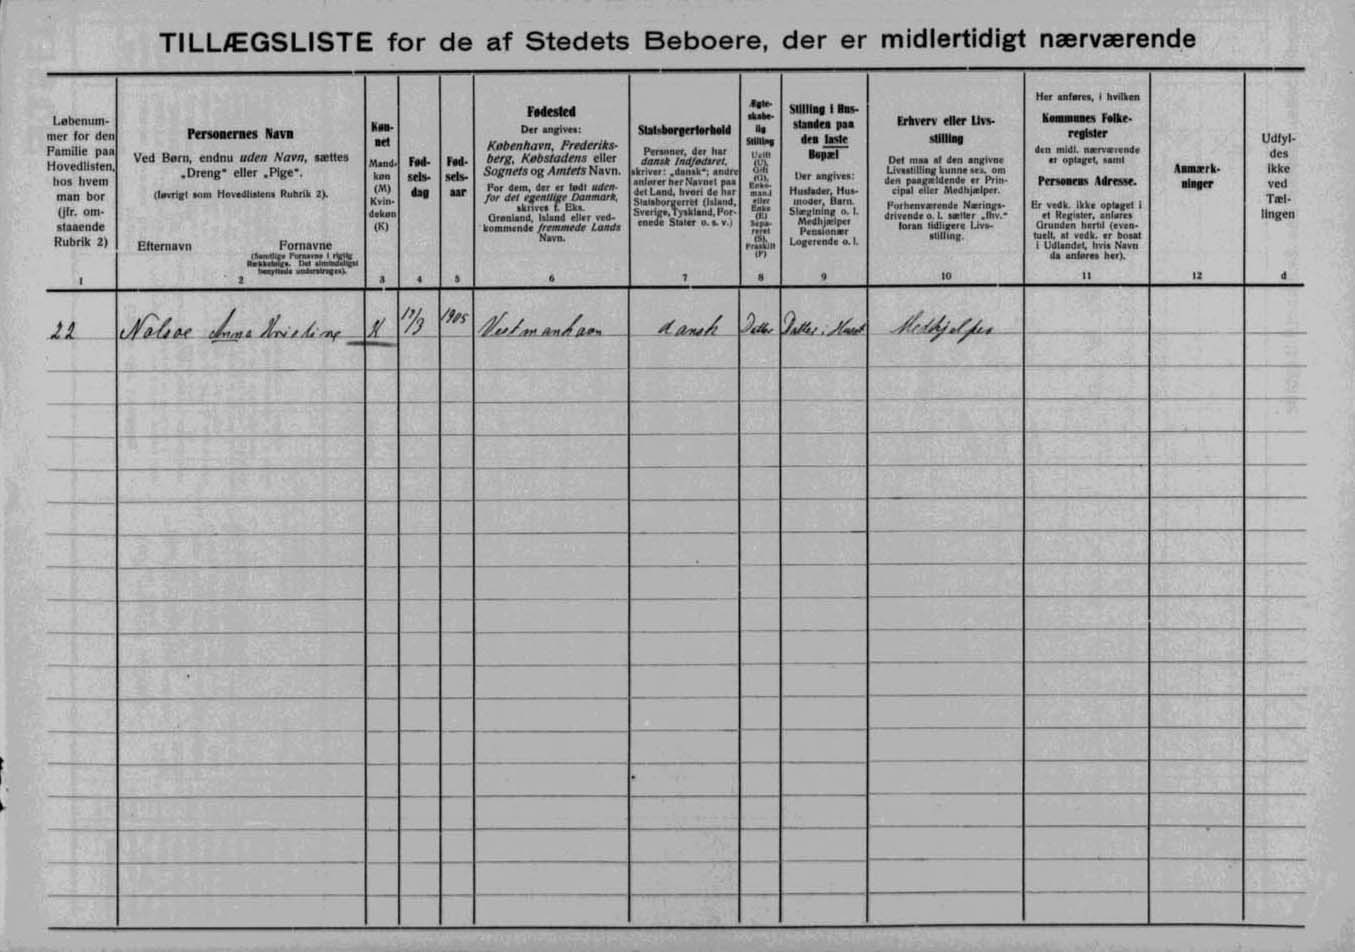 TILLÆGSLISTE for de af Stedets Beboere, der er midlertidigt nærværende
Løbenum-
mer for den
Familie paa
Hovedlisten,
hos hvem
man bor
(jfr. om-
staaende
Rubrik 2)
1
Personernes Navn
Ved Børn, endnu uden Navn, sættes
„Dreng" eller „Pige".
(Iøvrigt som Hovedlistens Rubrik 2).
Efternavn
Fornavne
(Samtlige Fornavne i rigtig
Rækkefølge. Det almindeligst
benyttede understreges).
2
Køn-
net
Mand-
køn
(M)
Kvin-
dekøn
(K)
3
Fød-
sels-
dag
4
Fød-
sels-
aar
5
Fødested
Der angives:
København, Frederiks-
berg, Købstadens eller
Sognets og Amtets Navn.
For dem, der er født uden-
for det egentlige Danmark,
skrives f. Eks.
Grønland, Island eller ved-
kommende fremmede Lands
Navn.
6
Statsborgerforhold
Personer, der har
dansk Indfødsret,
skriver: „dansk"; andre
anfører her Navnet paa
det Land, hvori de har
Statsborgerret (Island,
Sverige, Tyskland, For-
enede Stater o. s. v.)
7
Ægte-
skabe-
lig
Stilling
Ugift
(U),
Gift
(G),
Enke-
mand
eller
Enke
(E)
Sepa-
reret
(S),
Fraskilt
(F)
8
Stilling i Hus-
standen paa
den faste
Bopæl
Der angives:
Husfader, Hus-
moder, Barn,
Slægtning o. l.
Medhjælper
Pensionær
Logerende o. l.
9
Erhverv eller Livs-
stilling
Det maa af den angivne
Livsstilling kunne ses, om
den paagældende er Prin-
cipal eller Medhjælper.
Forhenværende Nærings-
drivende o. l. sætter „fhv."
foran tidligere Livs-
stilling.
10
Her anføres, i hvilken
Kommunes Folke-
register
den midl. nærværende
er optaget, samt
Personens Adresse.
Er vedk. ikke optaget i
et Register, anføres
Grunden hertil (even-
tuelt, at vedk. er bosat
i Udlandet, hvis Navn
da anføres her).
11
Anmærk-
ninger
12
Udfyl-
des
ikke
ved
Tæl-
lingen
d
22 Nolsøe Anna Kristine K 17/3 1905 Vestmanhavn dansk Datter Datter i Huset Medhjelper